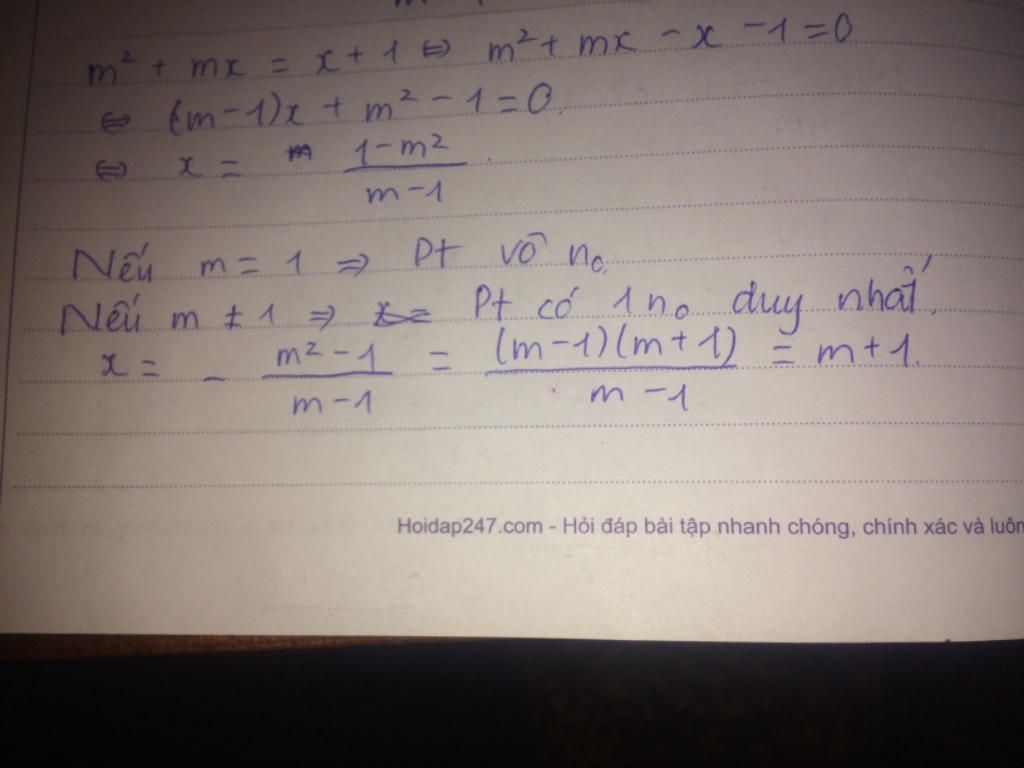 m² + mx = x + 1 ⇔ m² + mx - x - 1 = 0
⇔ (m-1)x + m² - 1 = 0.
⇔ x = \frac{1-m²}{m-1}.
Nếu m = 1 ⇒ Pt vô no.
Nếu m ≠ 1 ⇒ Pt có 1 no duy nhất,
x = - \frac{m²-1}{m-1} = \frac{(m-1)(m+1)}{m-1} = m+1.
Hoidap247.com - Hỏi đáp bài tập nhanh chóng, chính xác và luôn